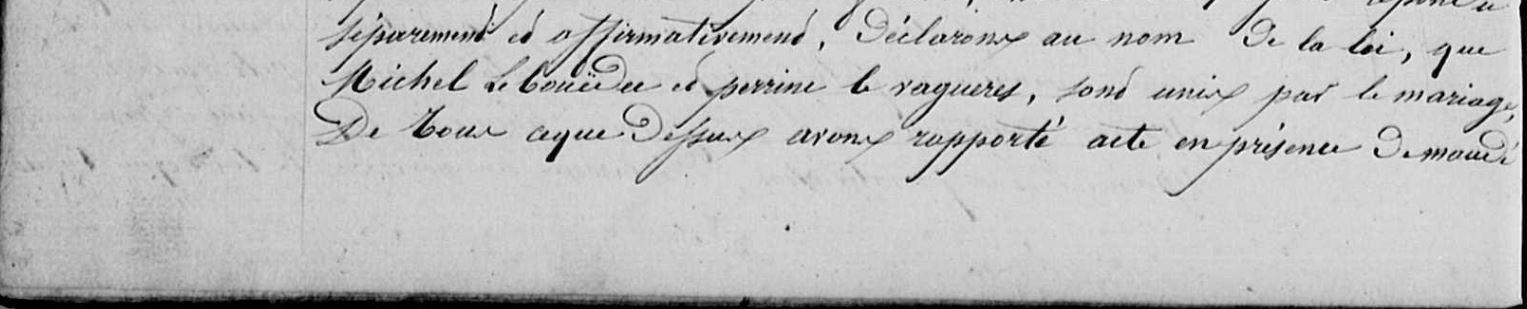 séparement et affirmativement, Déclarons au nom De la loi, que
Michel Le boüëdec et perrine le vagueres, sont unis par le mariage,
De tous ceque Dessus avons rapporté acte en présence De moudé